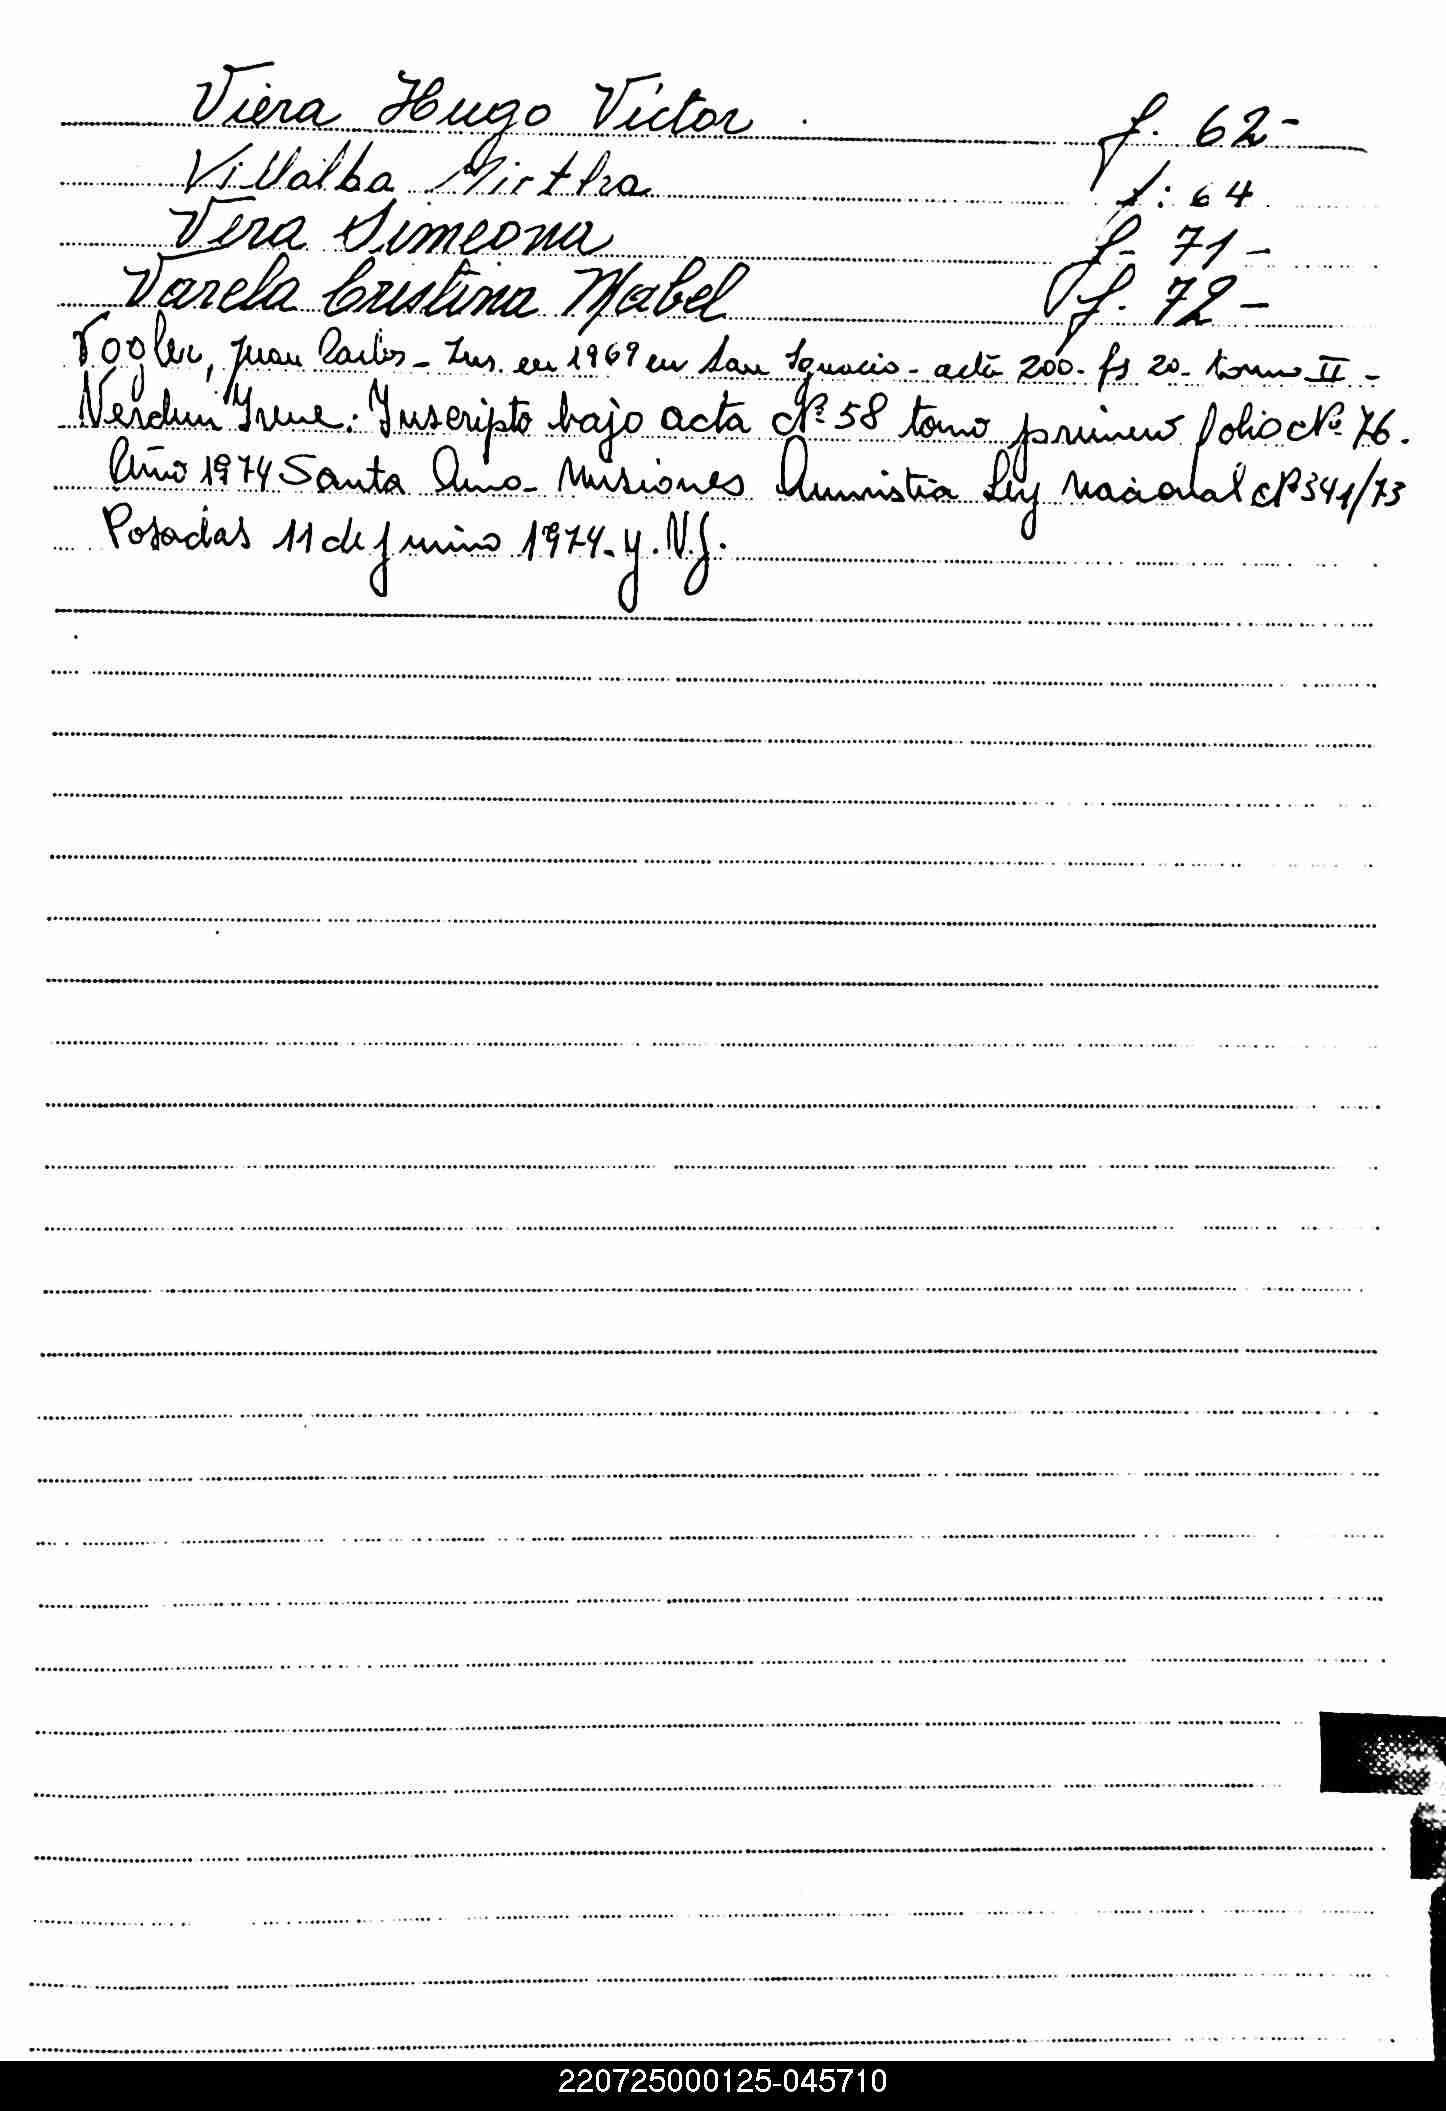 Viera Hugo Victor f. 62-
Villalba Mirtha f: 64
Vera Simeona f- 71-
Varela Cristina Mabel f. 72-
Vogler, Juan Carlos - Ins. en 1969 en San Ignacio - acta 200. fs 20. tomo II -
Verdun Irene: Inscripto bajo acta Nº 58 tomo primero folio Nº 76.
Año 1974 Santa Ana - Misiones Amnistia Ley Nacional Nº 341/73
Posadas 11 de junio 1974. y. N.J.
220725000125-045710